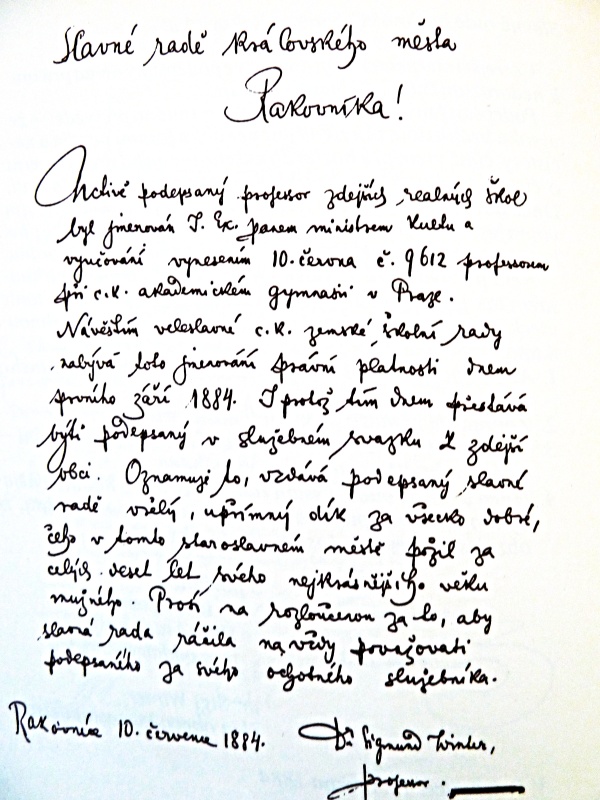 Slavné radě Královského města
Rakovníka!
Uctivě podepsaný professor zdejších realných škol
byl jmenován J. Ex. panem ministrem kultu a
vyučování vynesením 10. června č. 9612 professorem
při c. k. akademickém gymnasii v Praze.
Návěštím veleslavné c. k. zemské školní rady
nabývá toto jmenování právní platnosti dnem
prvního září 1884. I protož tím dnem přestává
býti podepsaný v služebném svazku z zdejší
obcí. Oznamuje to, vzdává podepsaný slavné
radě vřelý, upřímný dík za všecko dobré,
čeho v tomto staroslavném městě požil za
celých deset let svého nejkrásnějšího věku
mužného. Prosí na rozloučenou za to, aby
slavná rada ráčila na vždy považovati
podepsaného za svého ochotného služebníka.
Rakovník 10. července 1884. Dr Sigmund Winter,
professor.